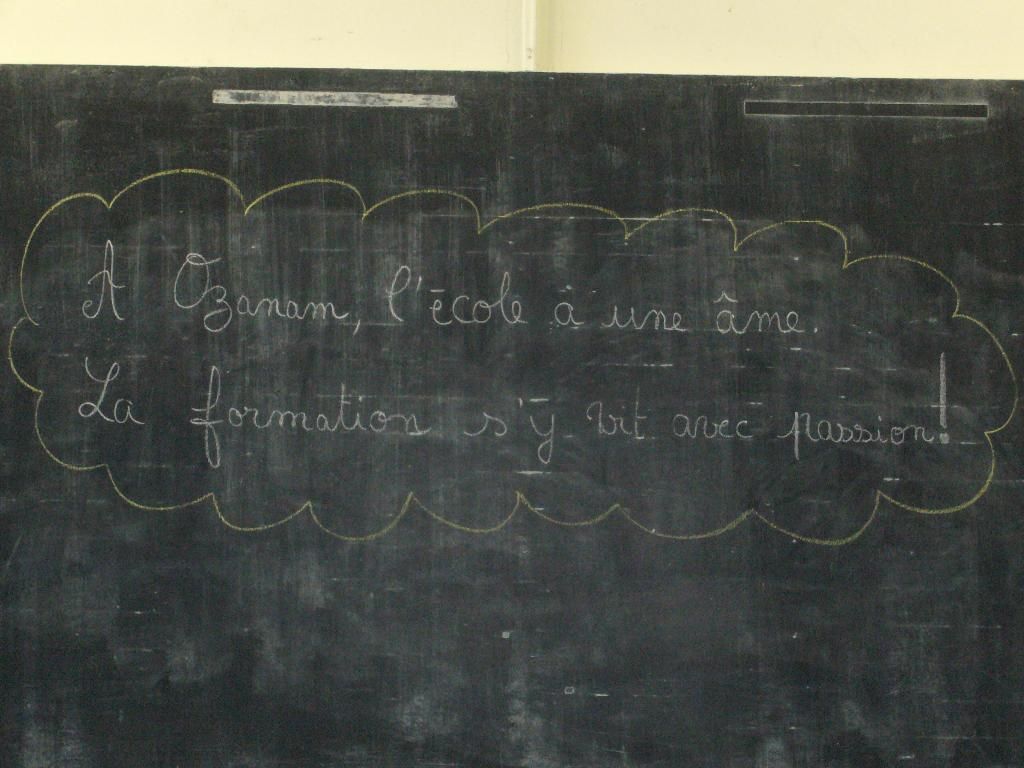 A Ozanam, l'école à une âme.
La formation s'y vit avec passion!